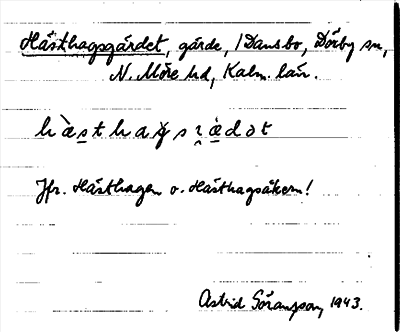 Hästhagsgärdet, gärde, 1 Dansbo, Dörby sn,
N. Möre hd, Kalm. län.
Jfr. Hästhagen o. Hästhagsåkern!
Astrid Göransson, 1943.